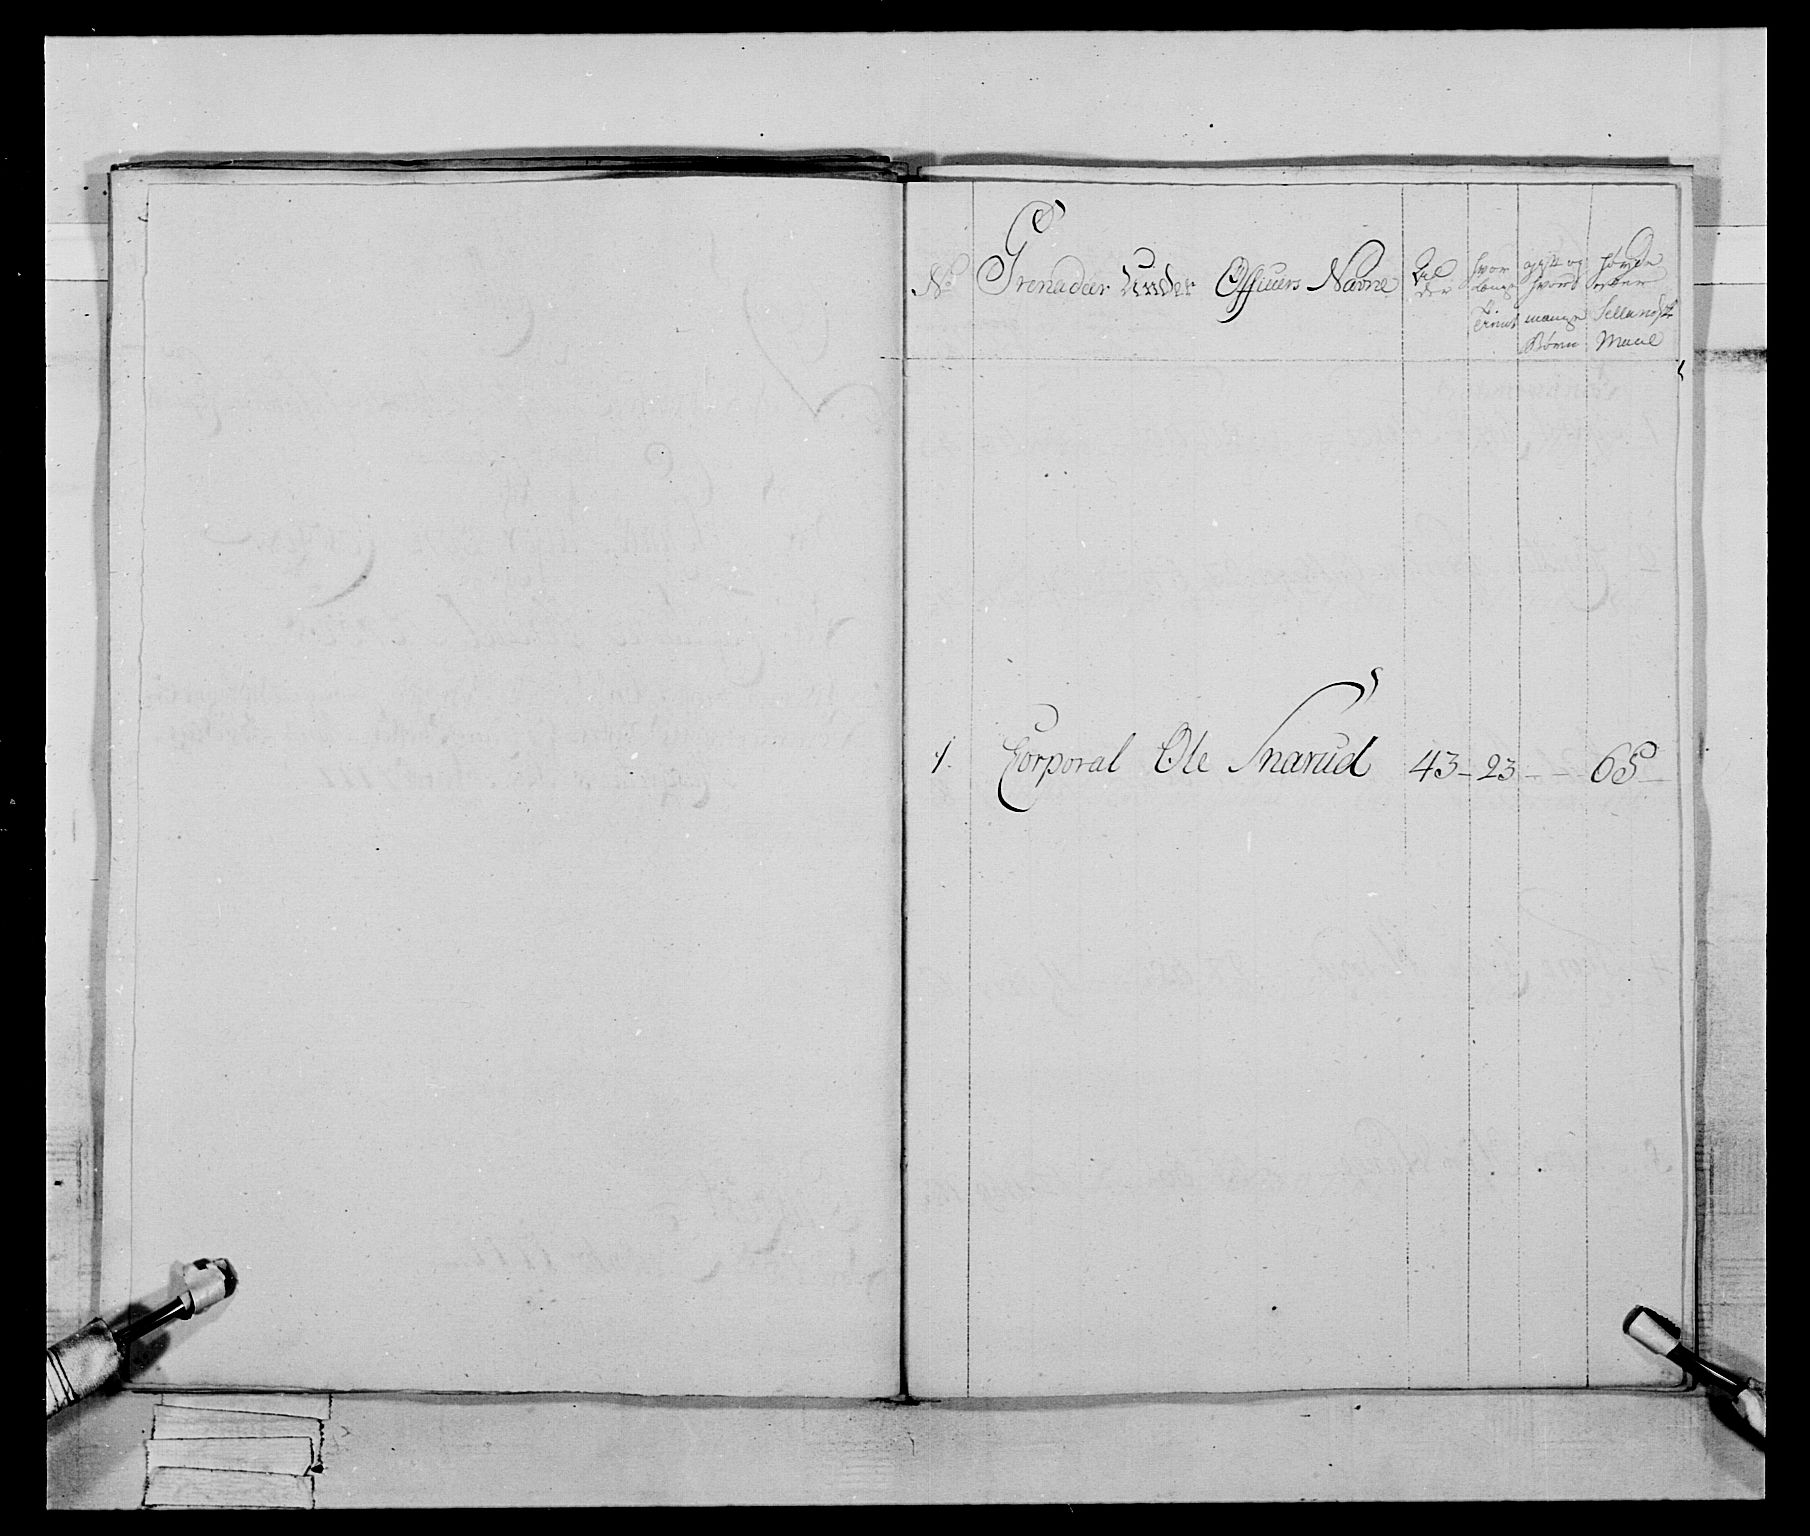 No Grenadeer Under Officiers Navne
Al
der
hvor
længe
tient
gift og
hvor
mange
Børn
høyde
efter
Sellandsk
Maal
1. Corporal Ole Snarud 43 – 23 – – – 65 –